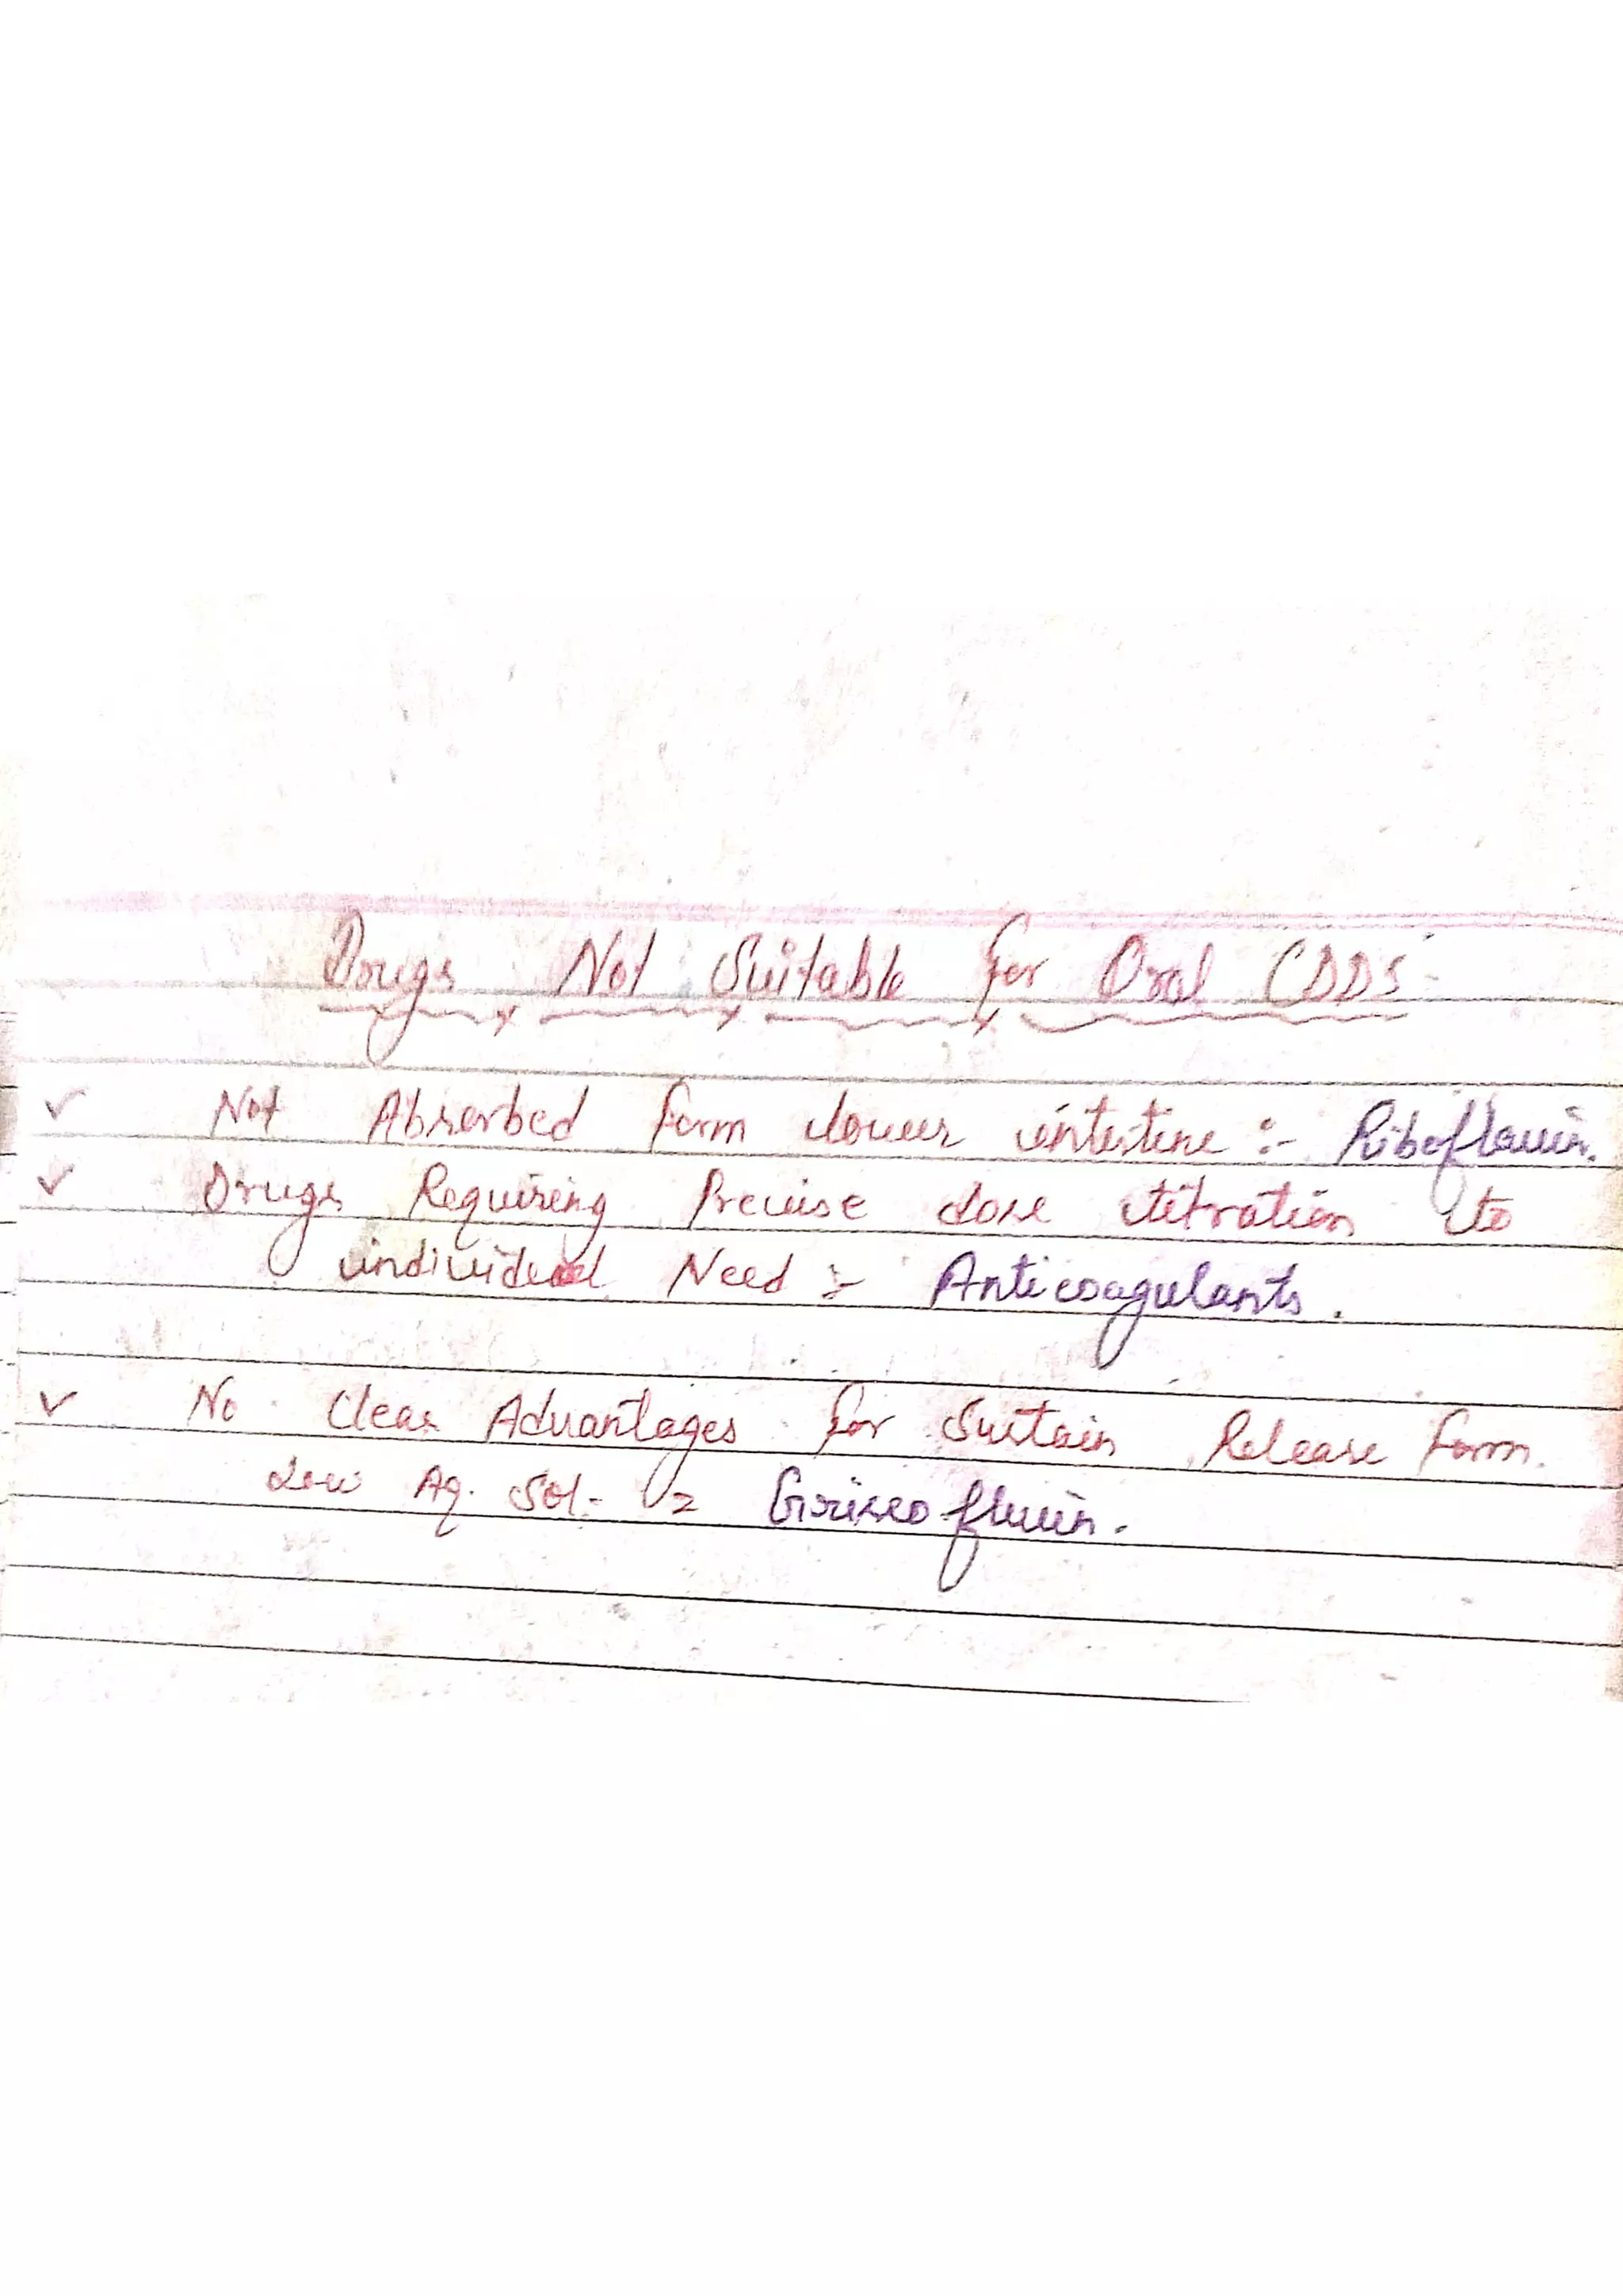 Drugs Not Suitable for Oral CDDS
✓ Not Absorbed form lower intestine :- Riboflavin.
✓ Drugs Requiring Precise dose titration to
individual Need :- Anticoagulants.
✓ No Clear Advantages for Sustain Release form.
Low Aq. Sol- = Griseofluvin.